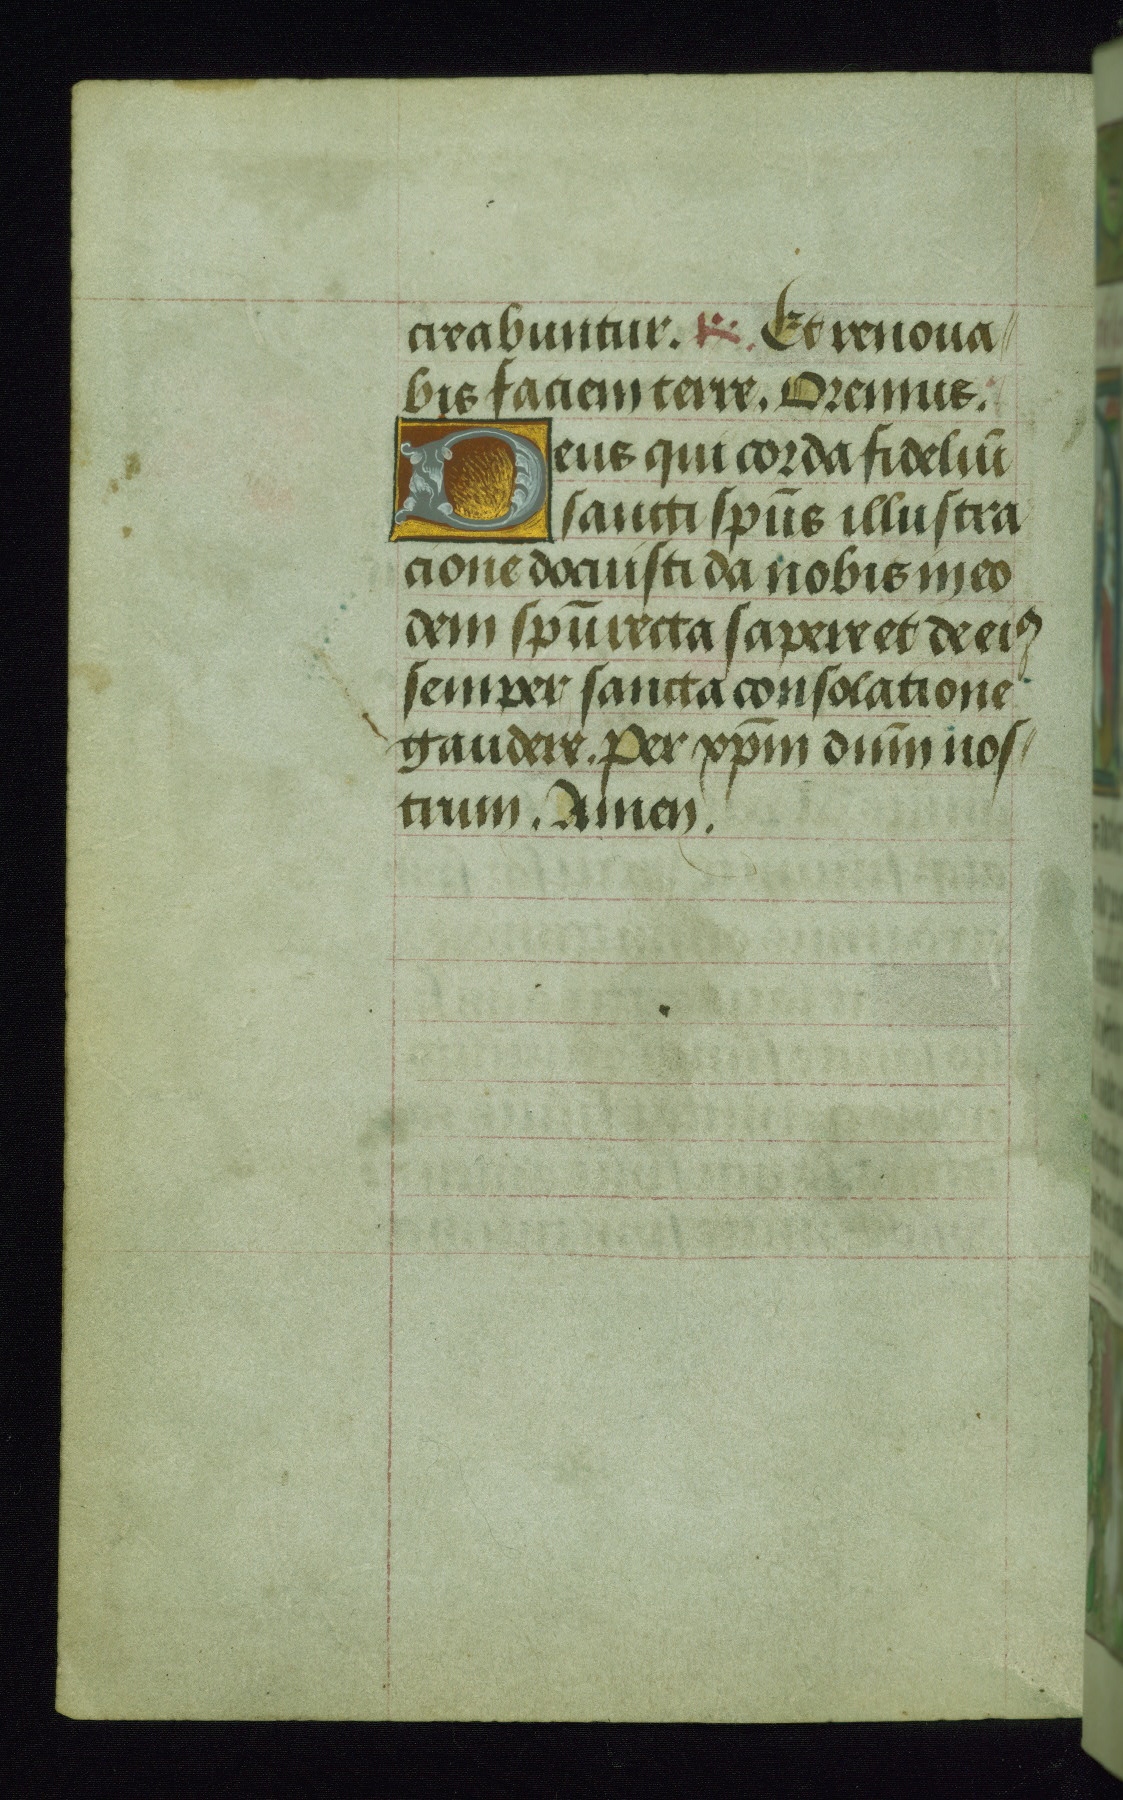 creabuntur. R. Et renoua
bis faciem terre. Oremus.
Deus qui corda fideliū
sancti spūs illustra
cione docuisti da nobis in eo
dem spū recta sapere et de eiꝰ
semper sancta consolatione
gaudere. Per xpm̄ dnm̄ nos
trum. Amen.